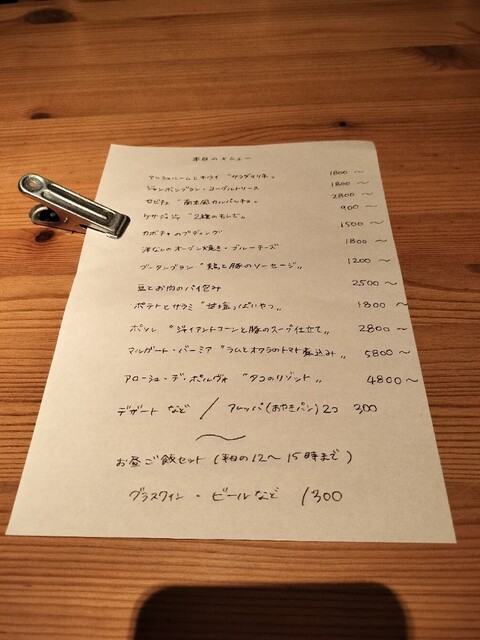 本日のメニュー
マッシュルームとキライ "サラダマリネ" 1800〜
ジャンボンブラン・ヨーグルトソース 1800〜
セビチェ "南米風カルパッチョ" 2800〜
ケサジジャ "2種のもしだ" 900〜
カボチャのプディング 1500〜
洋なしのオーブン焼き・ブルーチーズ 1800〜
ブータンブラン "鶏と豚のソーセージ" 1200〜
豆とお肉のパイ包み 2500〜
ポテトとサラミ "甘塩っぱいやつ" 1800〜
ポソレ "ジャイアントコーンと豚のスープ仕立て" 2800〜
マルガート・バーミア "ラムとオクラのトマト煮込み" 5800〜
アローシュ・デ・ポルヴォ "タコのリゾット" 4800〜
デザート など / アレッパ(おやきパン)2コ 300
〜
お昼ご飯セット (本日の12〜15時まで)
グラスワイン・ビールなど 1300